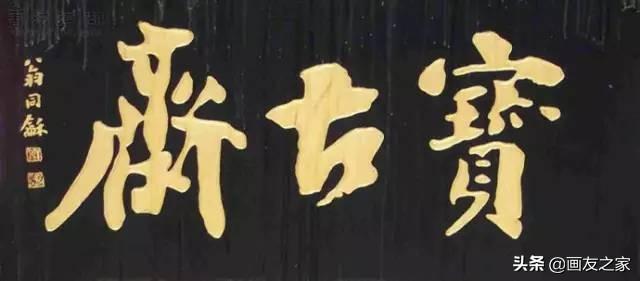 寶古齋
翁同龢
头条 @画友之家